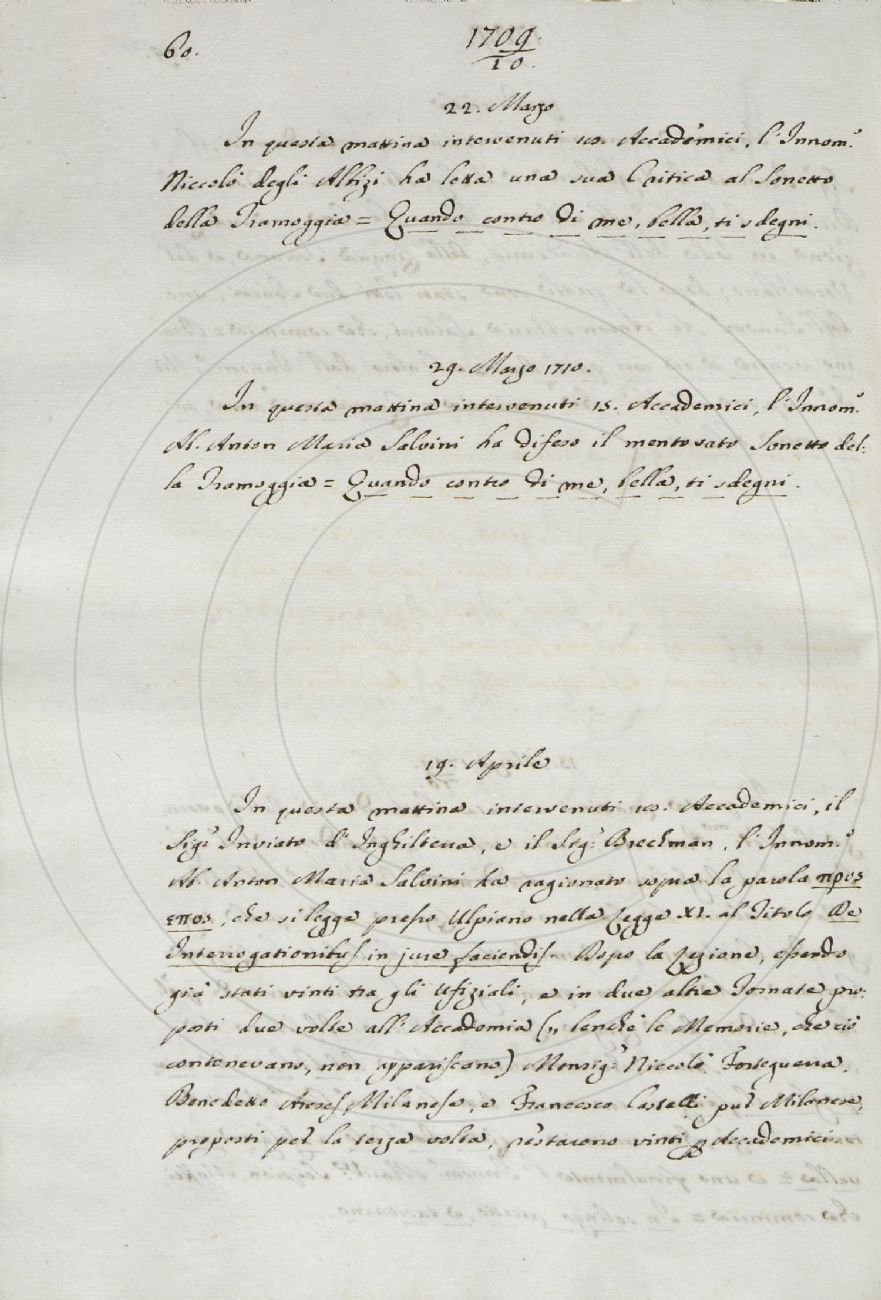 60.
1709/10.
22. Marzo
In questa mattina intervenuti 10. Accademici, l'Innom.°
Niccolò degli Albizi ha letta una sua Critica al Sonetto
della Tramoggia = Quando contro di me, bella, ti sdegni.
29. Marzo 1710.
In questa mattina intervenuti 15. Accademici, l'Innom.°
Ab. Anton Maria Salvini ha difeso il mentovato Sonetto del-
la Tramoggia = Quando contro di me, bella, ti sdegni.
19. Aprile
In questa mattina intervenuti 10. Accademici, il
Sig.r Inviato d'Inghilterra, e il Sig.r Brechman, l'Innom.°
Ab. Anton Maria Salvini ha ragionato sopra la parola προς
επος, che si legge presso Ulpiano nella Legge XI. al Titolo De
Interrogationibus in jure faciendis. Dopo la Lezione, essendo
già stati vinti tra gli Ufiziali, e in due altre Tornate pro-
posti due volte all'Accademia (benchè le Memorie, che ciò
contenevano, non appariscono) Monsig.r Niccolò Forteguerra,
Benedetto Milanese, e Francesco Castelli pur Milanese,
proposti per la terza volta, restarono vinti Accademici.